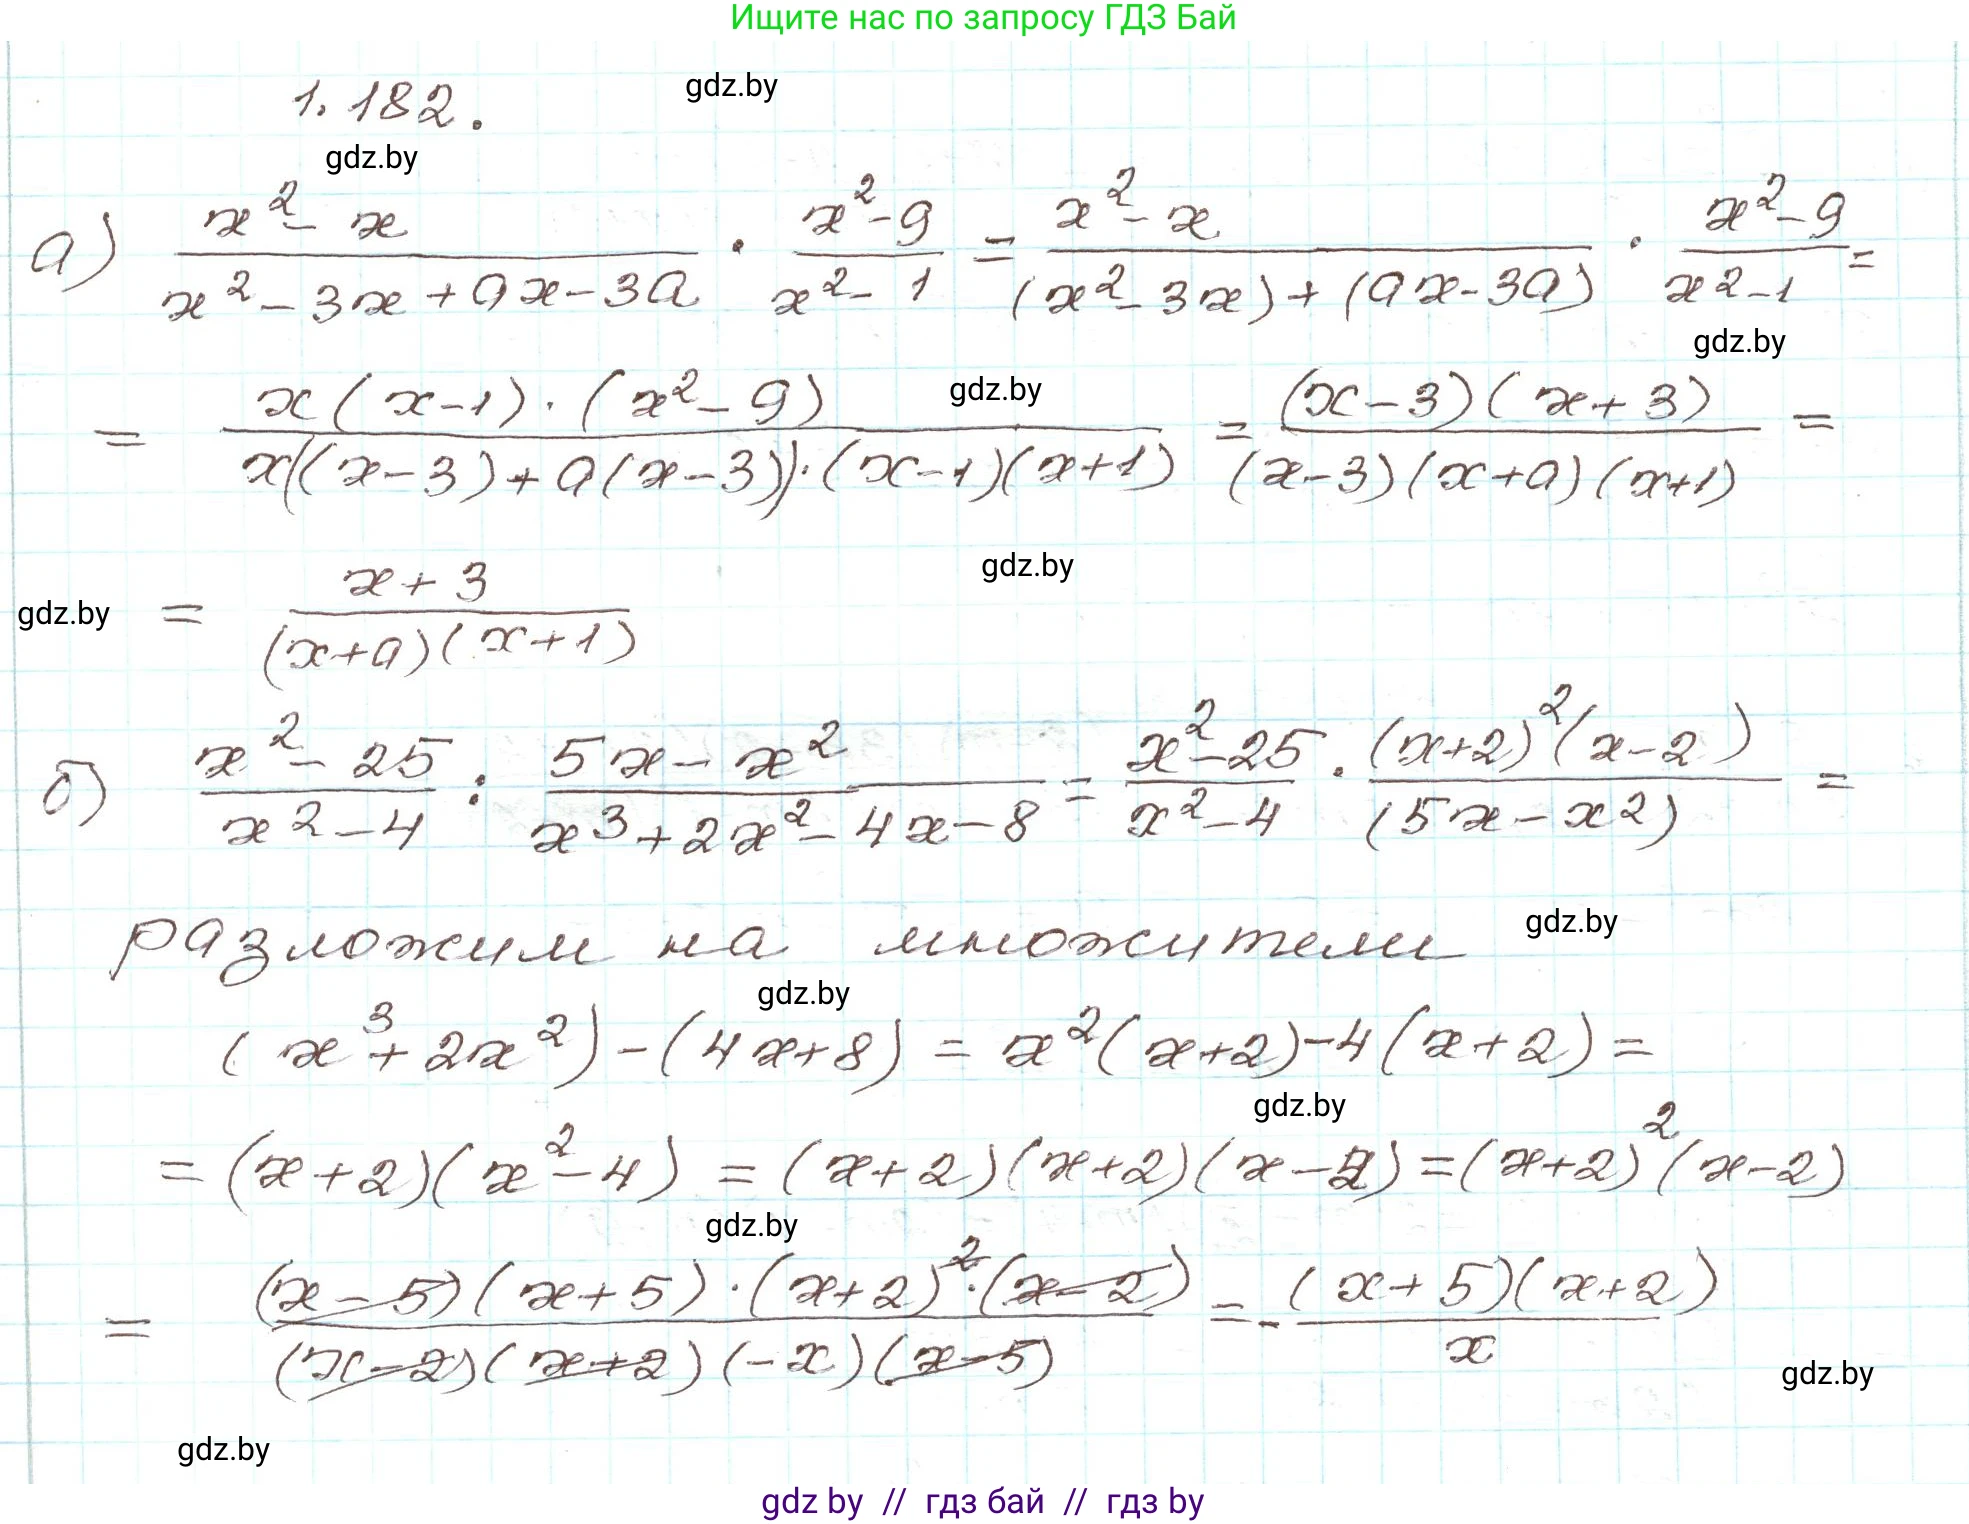 Ищите нас по запросу ГДЗ Бай
1.182.
gdz.by
gdz.by
а) (x² - x)/(x² - 3x + ax - 3a) · (x² - 9)/(x² - 1) = (x² - x)/((x² - 3x) + (ax - 3a)) · (x² - 9)/(x² - 1) =
gdz.by
= (x(x-1) · (x² - 9))/(x((x-3) + a(x-3)) · (x-1)(x+1)) = ((x-3)(x+3))/((x-3)(x+a)(x+1)) =
gdz.by
gdz.by
gdz.by = (x+3)/((x+a)(x+1))
б) (x² - 25)/(x² - 4) : (5x - x²)/(x³ + 2x² - 4x - 8) = (x² - 25)/(x² - 4) · ((x+2)²(x-2))/((5x - x²)) =
разложим на множители
gdz.by
gdz.by
(x³ + 2x²) - (4x + 8) = x²(x+2) - 4(x+2) =
gdz.by
= (x+2)(x² - 4) = (x+2)(x+2)(x-2) = (x+2)²(x-2)
gdz.by
= ((x-5)(x+5) · (x+2)² · (x-2))/((x-2)(x+2)(-x)(x-5)) = - ((x+5)(x+2))/x
gdz.by
gdz.by
gdz by // гдз бай // гдз by